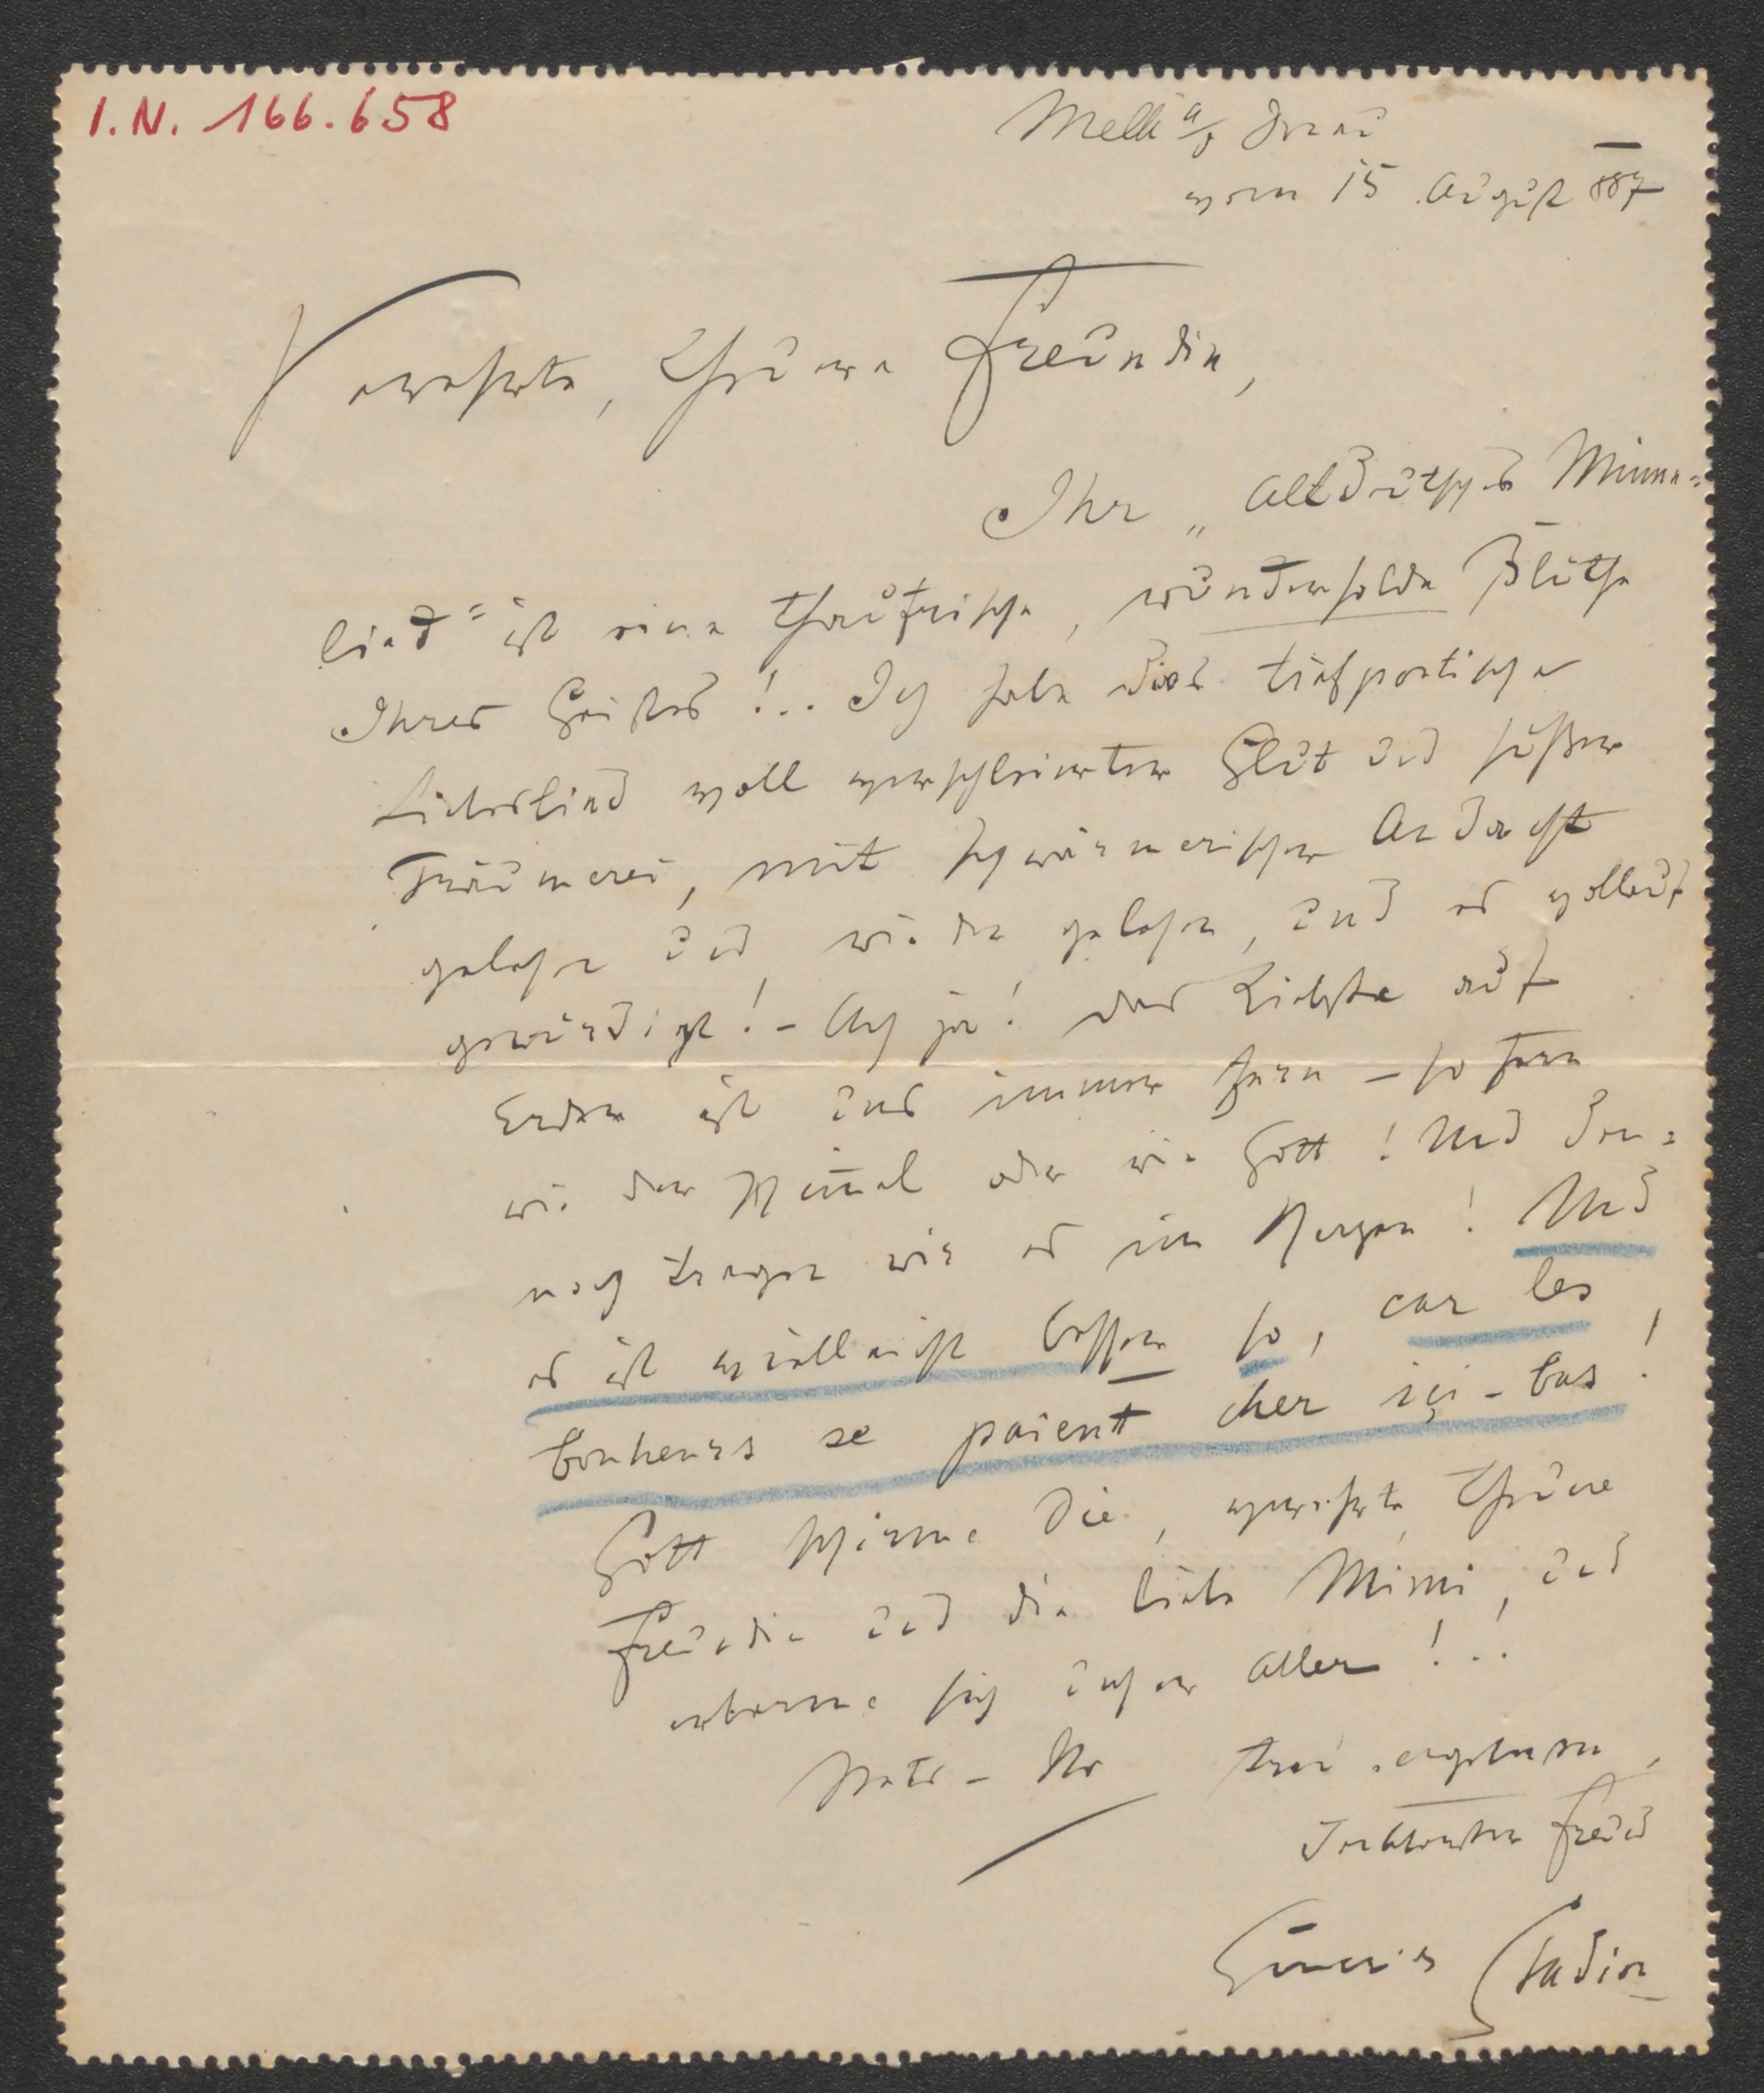 I.N. 166.658
Melk a/d Donau
vom 15 August 887
Verehrte, theuere Freundin,
Ihr „Altdeutsches Minne=
lied" ist eine thaufrische, wunderholde Blüthe
Ihres Geistes!... Ich habe dies tiefpoetische
Liebeslied voll verschleierter Glut und süßer
Träumerei, mit schwärmerischer Andacht
gelesen und wieder gelesen, und es vollauf
gewürdigt! – Ach ja! das Liebste auf
Erden ist uns immer fern – so fern
wie der Himmel oder wie Gott! Und den=
noch tragen wir es im Herzen! Und
es ist vielleicht besser so, car les
bonheurs se paient cher içi-bas!
Gott schirme Sie, verehrte, theuere
Freundin und die liebe Mimi, und
erbarme sich unser Aller!..!
Stets – Ihr treu ergebener,
Freund
Stadion